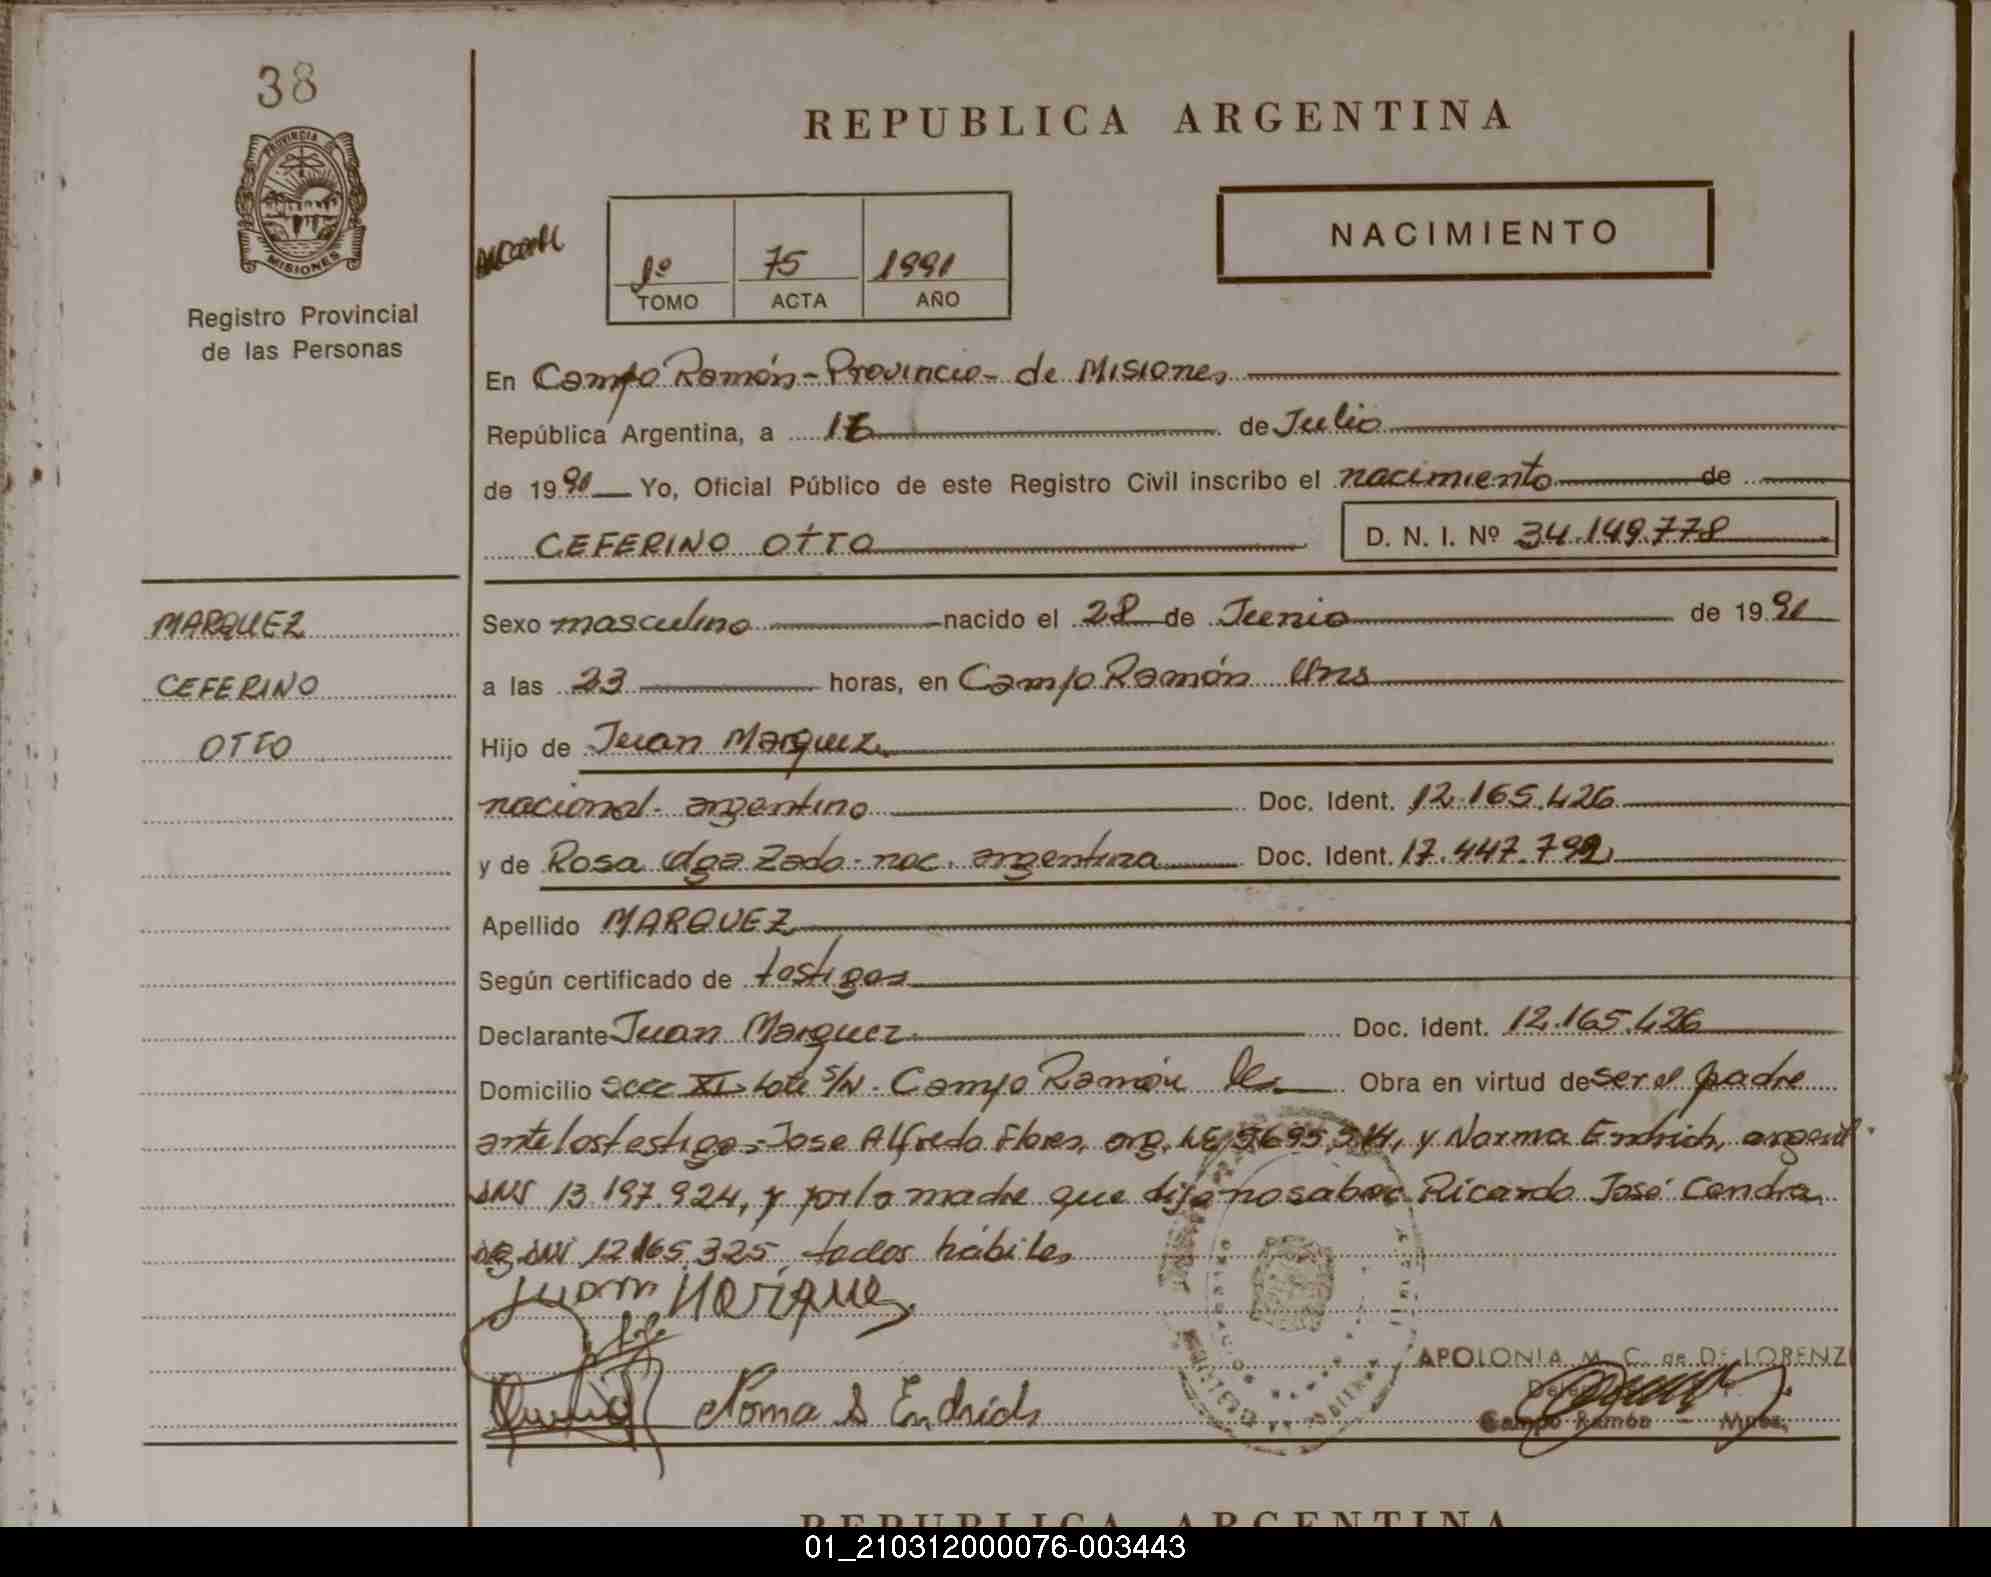 38
REPUBLICA ARGENTINA
PROVINCIA DE
MISIONES
Registro Provincial
de las Personas
1º 75 1991
TOMO ACTA AÑO
NACIMIENTO
En Campo Ramón - Provincia de Misiones
República Argentina, a 16 de Julio
de 1991 Yo, Oficial Público de este Registro Civil inscribo el nacimiento de
CEFERINO OTTO D. N. I. Nº 34.149.778
MARQUEZ
CEFERINO
OTTO
Sexo masculino nacido el 28 de Junio de 1991
a las 23 horas, en Campo Ramón Mns
Hijo de Juan Marquez
nacional. argentino Doc. Ident. 12.165.426
y de Rosa Olga Zado - nac. argentina Doc. Ident. 17.447.792
Apellido MARQUEZ
Según certificado de testigos
Declarante Juan Marquez Doc. Ident. 12.165.426
Domicilio Secc XI Lote S/N. Campo Ramón Obra en virtud de ser el padre
ante los testigos Jose Alfredo Flores, arg. LE y Norma Endrich, argent
DNI 13.197.924, y por la madre que dijo no saber Ricardo José
arg DNI 12.165.325 todos hábiles
Juan Marquez
Norma S Endrich
APOLONIA M. C. de DE LORENZI
Campo Ramón - Mnes.
REPUBLICA ARGENTINA
01_210312000076-003443